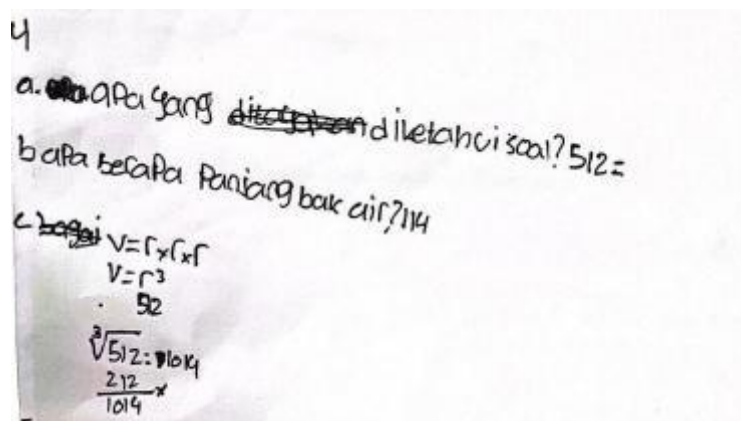 4
a. apa yang diketahui soal? 512=
b apa berapa Panjang bak air? 114
c V=r×r×r
V=r³
512
³√512=1014
212
1014 ×